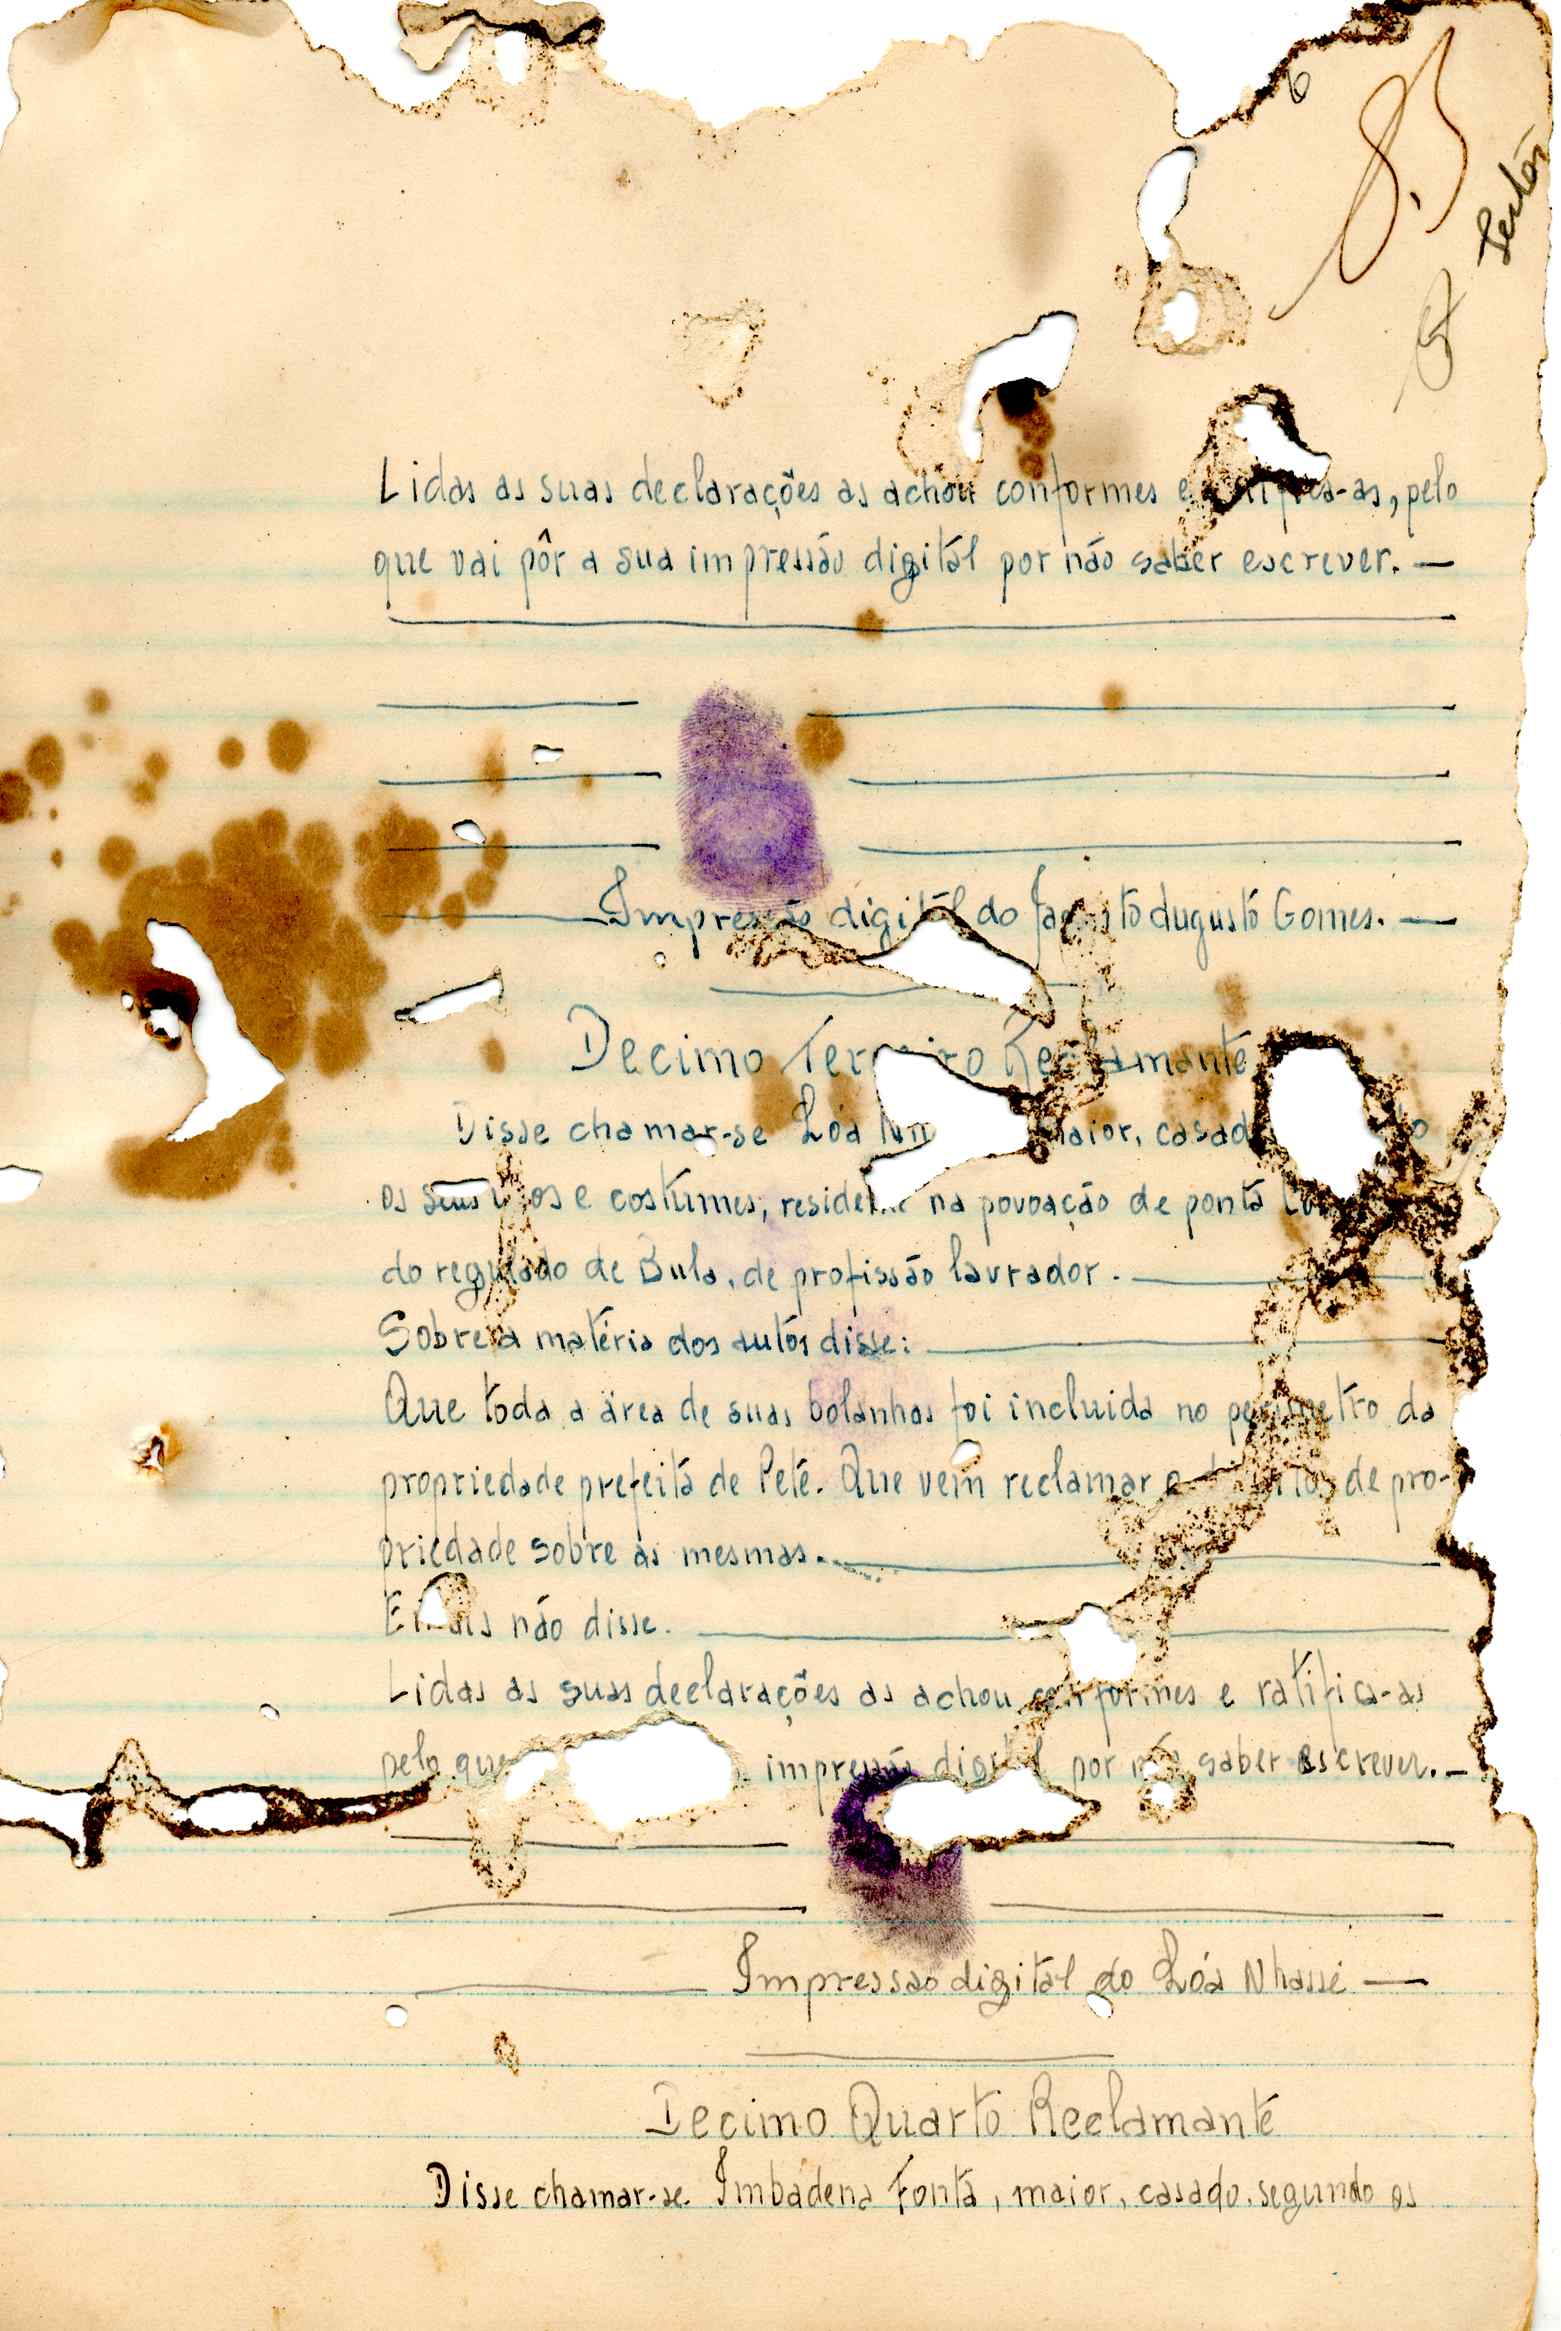 6
Lidas as suas declarações as achou conformes e pelo
que vai pôr a sua impressão digitál por não saber escrever. —
Impressão digitál do Augusto Gomes. —
Decimo Terceiro Reclamante
Disse chamar-se Lóa maior, casado
os seus usos e costumes, residente na povoação de ponta
do regulado de Bula, de profissão lavrador. —
Sobre a matéria dos autos disse: —
Que toda a área de suas bolanhas foi incluida no perimetro da
propriedade prefeita de Peté. Que vem reclamar de pro-
priedade sobre as mesmas. —
E mais não disse. —
Lidas as suas declarações as achou conformes e ratifica-as
pelo que impressão digital por não saber escrever. —
Impressão digital do Lóa Nhassé —
Decimo Quarto Reclamante
Disse chamar-se Imbadena Fonta, maior, casado, segundo os